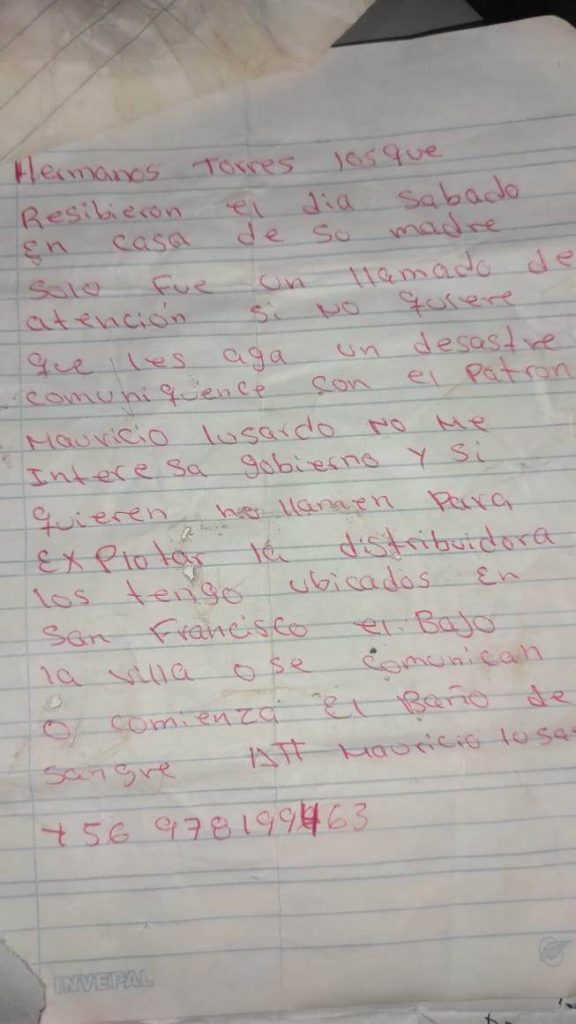 Hermanos Torres los que
Resibieron el dia sabado
en casa de so madre
solo fue un llamado de
atención si no quiere
que les aga un desastre
comuniquence con el Patron
Mauricio lusardo no me
interesa gobierno y si
quieren no llamen para
explotar la distribuidora
los tengo ubicados en
san Francisco el Bajo
la villa o se comonican
o comienza el Baño de
sangre ATT Mauricio lusar
+56 978199463
INVEPAL